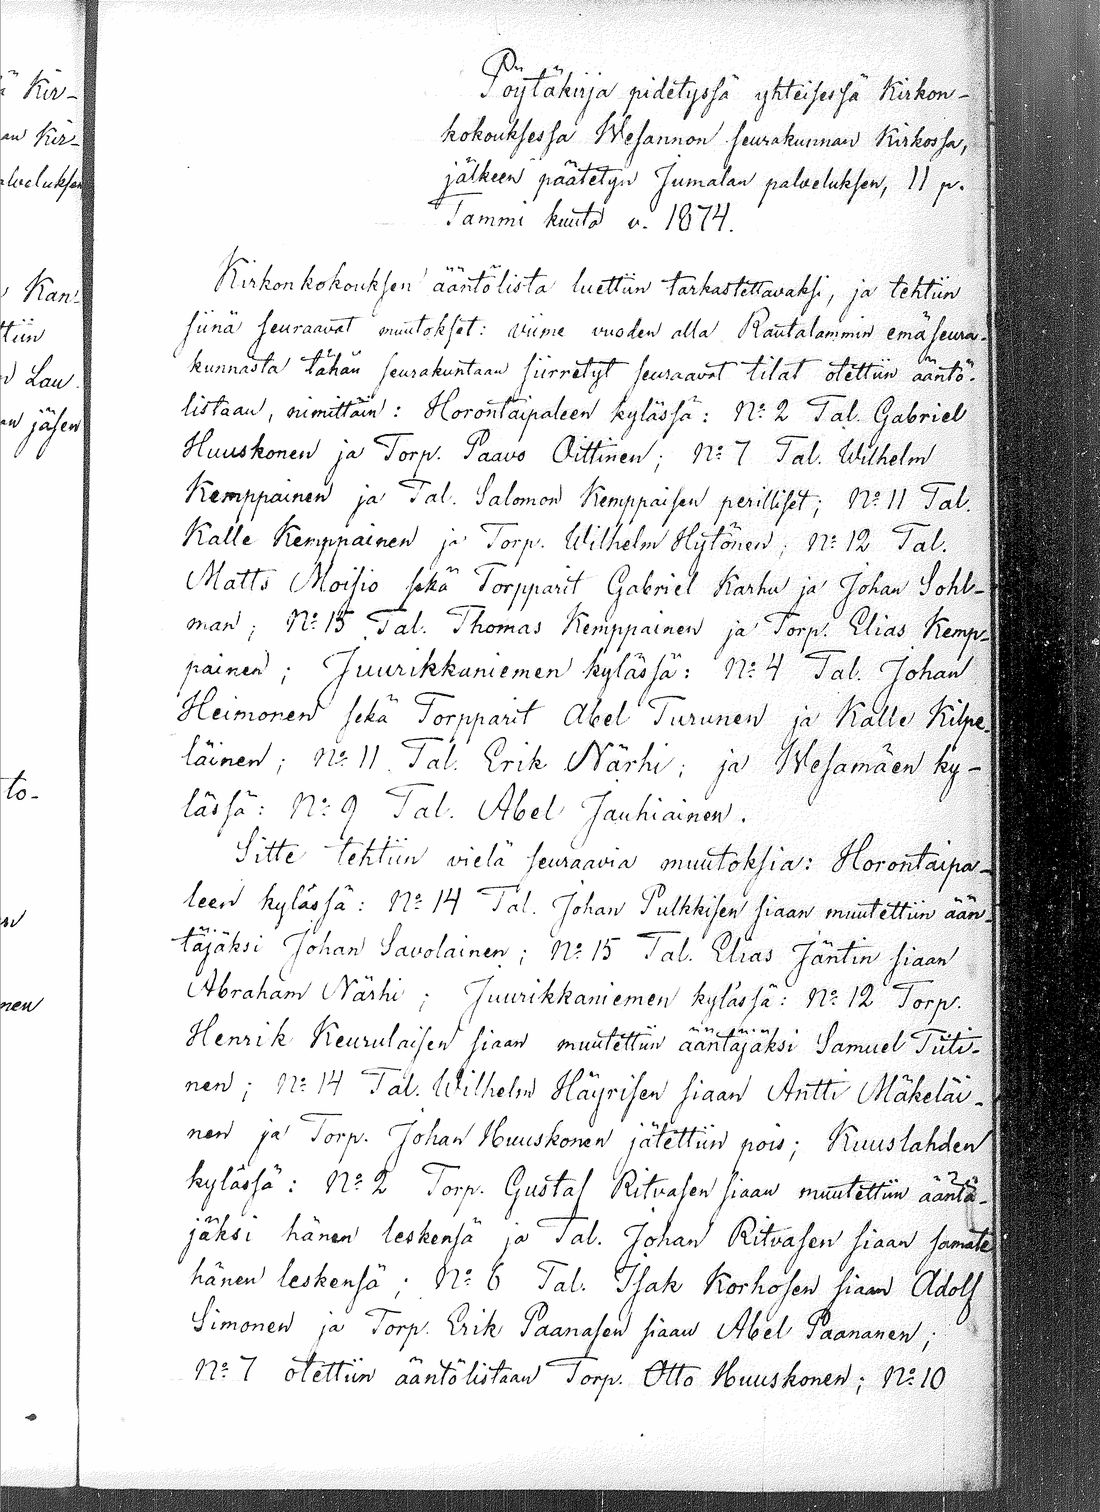 Pöytäkirja pidetyssä yhteisessä Kirkon-
kokouksessa Wesannon seurakunnan Kirkossa,
jälkeen päätetyn Jumalan palveluksen, 11 p.
Tammi kuuta v. 1874.
Kirkonkokouksen ääntölista luettiin tarkastettavaksi, ja tehtiin
siinä seuraavat muutokset: viime vuoden alla Rautalammin emäseura-
kunnasta tähän seurakuntaan siirretyt seuraavat tilat otettiin ääntö-
listaan, nimittäin: Horontaipaleen kylässä: No 2 Tal. Gabriel
Huuskonen ja Torp. Paavo Oittinen; No 7 Tal. Wilhelm
Kemppainen ja Tal. Salomon Kemppaisen perilliset; No 11 Tal.
Kalle Kemppainen ja Torp. Wilhelm Hytönen; No 12 Tal.
Matts Moisio sekä Torpparit Gabriel Karhu ja Johan Sohl-
man; No 15 Tal. Thomas Kemppainen ja Torp. Elias Kemp-
painen; Juurikkaniemen kylässä: No 4 Tal. Johan
Heimonen sekä Torpparit Abel Turunen ja Kalle Kilpe-
läinen; No 11 Tal. Erik Närhi; ja Wesamäen ky-
lässä: No 9 Tal. Abel Jauhiainen.
Sitte tehtiin vielä seuraavia muutoksia: Horontaipa-
leen kylässä: No 14 Tal. Johan Pulkkisen siaan muutettiin ään-
täjäksi Johan Savolainen; No 15 Tal. Elias Jäntin siaan
Abraham Närhi; Juurikkaniemen kylässä: No 12 Torp.
Henrik Keurulaisen siaan muutettiin ääntäjäksi Samuel Tiiti-
nen; No 14 Tal. Wilhelm Häyrisen siaan Antti Mäkeläi-
nen ja Torp. Johan Huuskonen jätettiin pois; Kuuslahden
kylässä: No 2 Torp. Gustaf Ritvasen siaan muutettiin ääntä-
jäksi hänen leskensä ja Tal. Johan Ritvasen siaan samate
hänen leskensä; No 6 Tal. Isak Korhosen siaan Adolf
Simonen ja Torp. Erik Paanasen siaan Abel Paananen;
No 7 otettiin ääntölistaan Torp. Otto Huuskonen; No 10